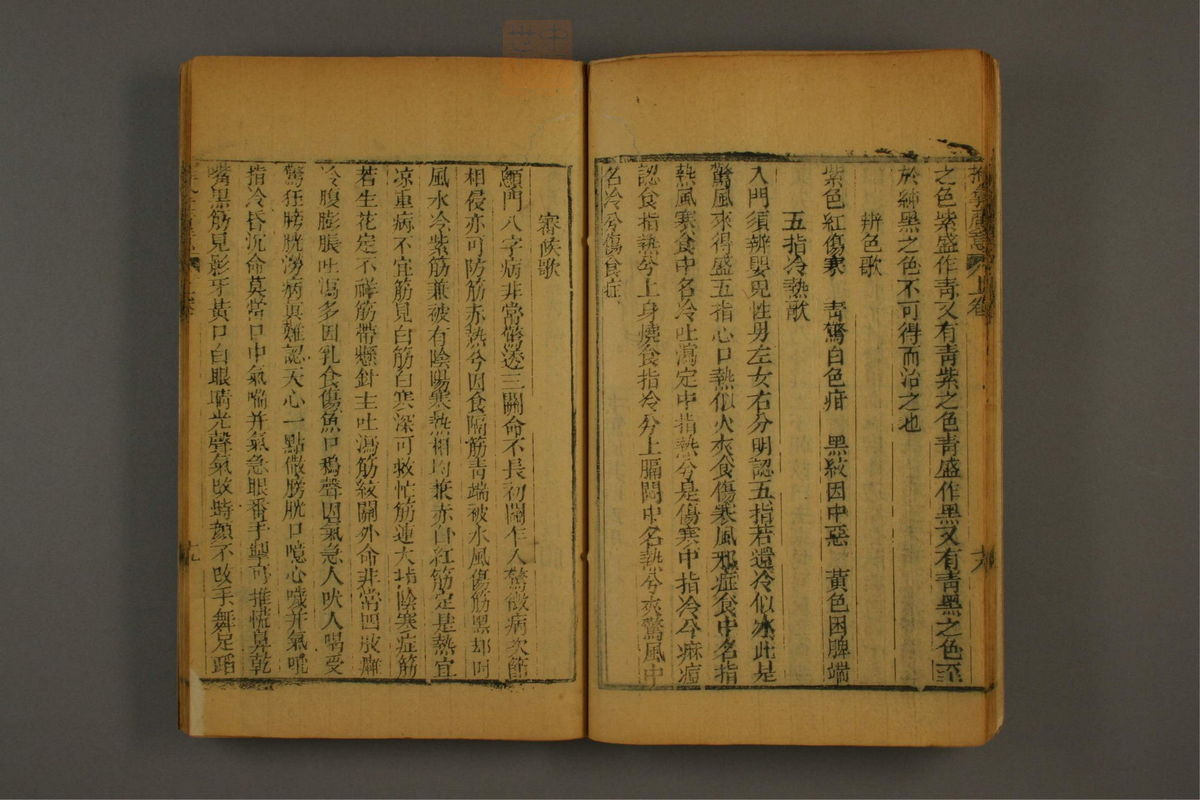 之色紫盛作青又有青紫之色青盛作黑又有青黑之色至
於純黑之色不可得而治之也
辨色歌
紫色紅傷寒 青驚白色疳 黑紋因中惡 黃色困脾端
五指冷熱歌
入門須辨嬰兒性男左女右分明認五指若還冷似冰此是
驚風來得盛五指心口熱似火夾食傷寒風邪症食中名指
熱風寒食中名冷吐瀉定中指熱兮是傷寒中指冷兮麻痘
認食指熱兮上身燒食指冷兮上膈悶中名熱兮夾驚風中
名冷兮傷食症
審候歌
顖門八字病非常驚透三關命不長初關作人驚微病次節
相侵亦可防筋赤熱兮因食隔筋青端被水風傷筋黑却因
風水冷紫筋兼破有陰陽寒熱相均兼赤白紅筋定是熱宜
凉重病不宜筋見白筋白寒深可救忙筋連大指陰寒症筋
若生花定不祥筋帶懸針主吐瀉筋紋關外命非常四肢癱
冷腹膨脹吐瀉多因乳食傷魚口鴉聲因氣急人吠人唱受
驚狂膀胱澇病眞難認天心一點儆膀胱口噫心噦并氣
指冷昏沉命莫當口中氣喘并氣急眼番手掣可推慌鼻乾
嘴黑筋見影牙黃口白眼晴光聲氣改時顏不改手舞足蹈
上卷